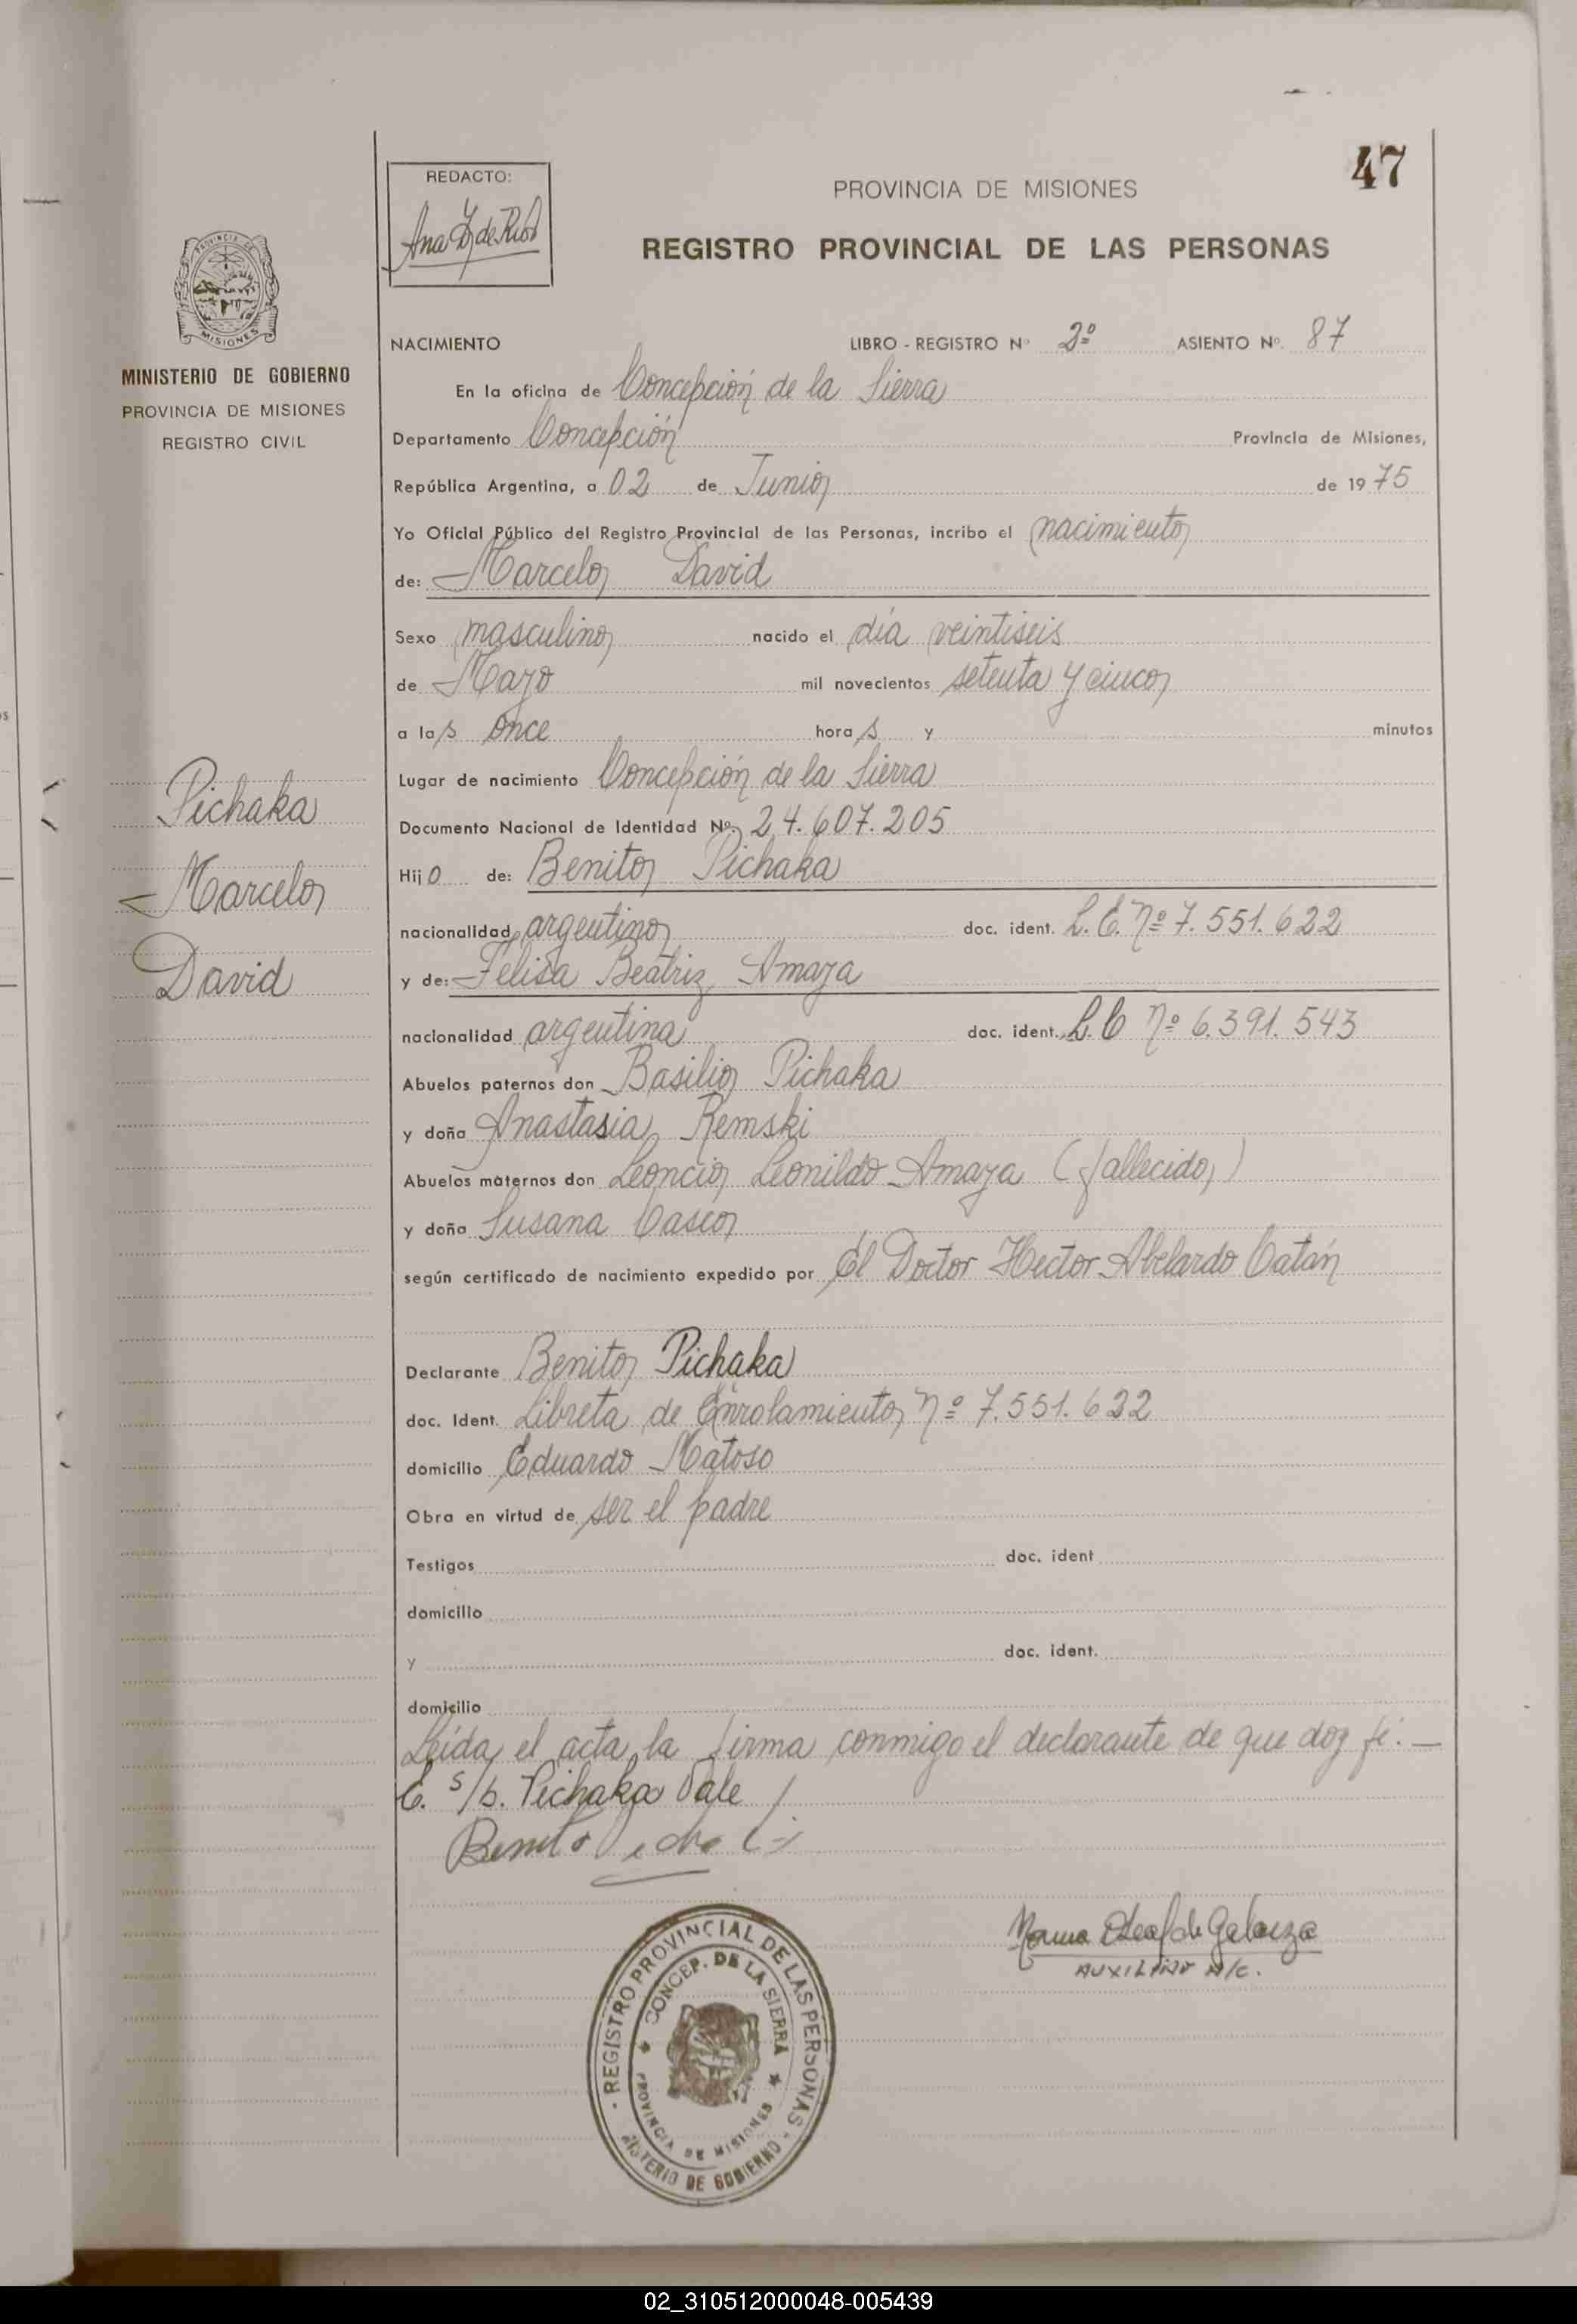 47
REDACTO:
Ana Z de Rios
PROVINCIA DE MISIONES
REGISTRO PROVINCIAL DE LAS PERSONAS
PROVINCIA DE
MISIONES
MINISTERIO DE GOBIERNO
PROVINCIA DE MISIONES
REGISTRO CIVIL
NACIMIENTO LIBRO - REGISTRO Nº 2º ASIENTO Nº. 87
En la oficina de Concepción de la Sierra
Departamento Concepción Provincia de Misiones,
República Argentina, a 02 de Junio de 1975
Yo Oficial Público del Registro Provincial de las Personas, incribo el nacimiento
de: Marcelo David
Sexo masculino nacido el día veintiseis
de Mayo mil novecientos setenta y cinco
a las once horas y minutos
Lugar de nacimiento Concepción de la Sierra
Documento Nacional de Identidad Nº. 24.607.205
Hijo de: Benito Pichaka
nacionalidad argentino doc. ident. L.E. Nº 7.551.622
y de: Felisa Beatriz Amaya
nacionalidad argentina doc. ident. L.C Nº 6.391.543
Abuelos paternos don Basilio Pichaka
y doña Anastasia Remski
Abuelos maternos don Leoncio Leonildo Amaya (fallecido)
y doña Susana Casco
según certificado de nacimiento expedido por El Doctor Hector Abelardo Catán
Declarante Benito Pichaka
doc. Ident. Libreta de Enrolamiento Nº 7.551.622
domicilio Eduardo Matoso
Obra en virtud de ser el padre
Testigos doc. ident
domicilio
y doc. ident.
domicilio
Leída el acta, la firma conmigo el declarante de que doy fé. —
E. s/b. Pichaka Vale
Benito
Pichaka
Marcelo
David
de Galarza
AUXILIAR A/C.
REGISTRO PROVINCIAL DE LAS PERSONAS
CONCEP. DE LA SIERRA
PROVINCIA DE MISIONES
MINISTERIO DE GOBIERNO
02_310512000048-005439